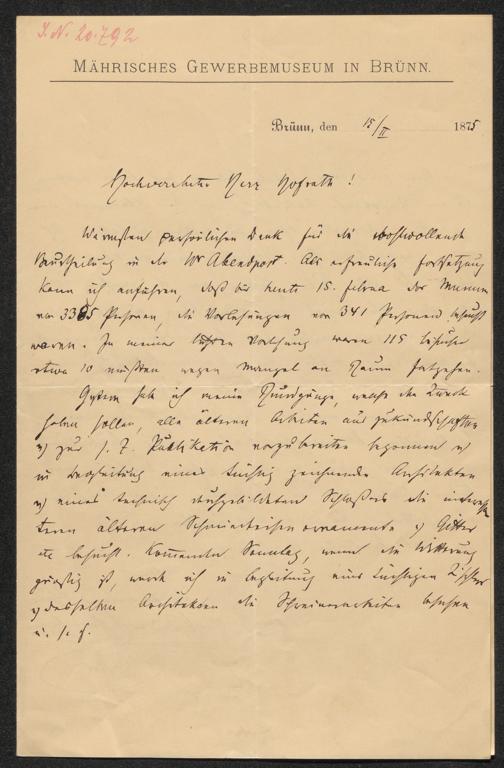 I.N. 20.792
MÄHRISCHES GEWERBEMUSEUM IN BRÜNN.
Brünn, den 15/II 1875
Hochverehrter Herr Hofrath!
Wärmsten persönlichen Dank für die wohlwollende
Beurtheilung in der Wr Abendpost. Als erfreuliche Fortsetzung
kann ich anführen, daß bis heute 15. Februar das Museum
von 3385 Personen, die Vorlesungen von 341 Personen besucht
waren. In meiner Vorlesung waren 115 Besucher
etwa 10 mußten wegen Mangel an Raum fortgehen.
Gestern habe ich meine Rundgänge, welche den Zweck
haben sollen, alle älteren Arbeiten
zur s. Z. Publikation vorzubereiten begonnen
in Begleitung eines tüchtig zeichnenden Architekten
eines technisch durchgebildeten Schlossers die
älteren Schmiedeeisenornamente Gitter
etc besucht. Kommenden Sonntag, wenn die Witterung
günstig ist, werde ich in Begleitung eines tüchtigen Tischlers
desselben Architekten die Schreinerarbeiten besehen
u. s. f.